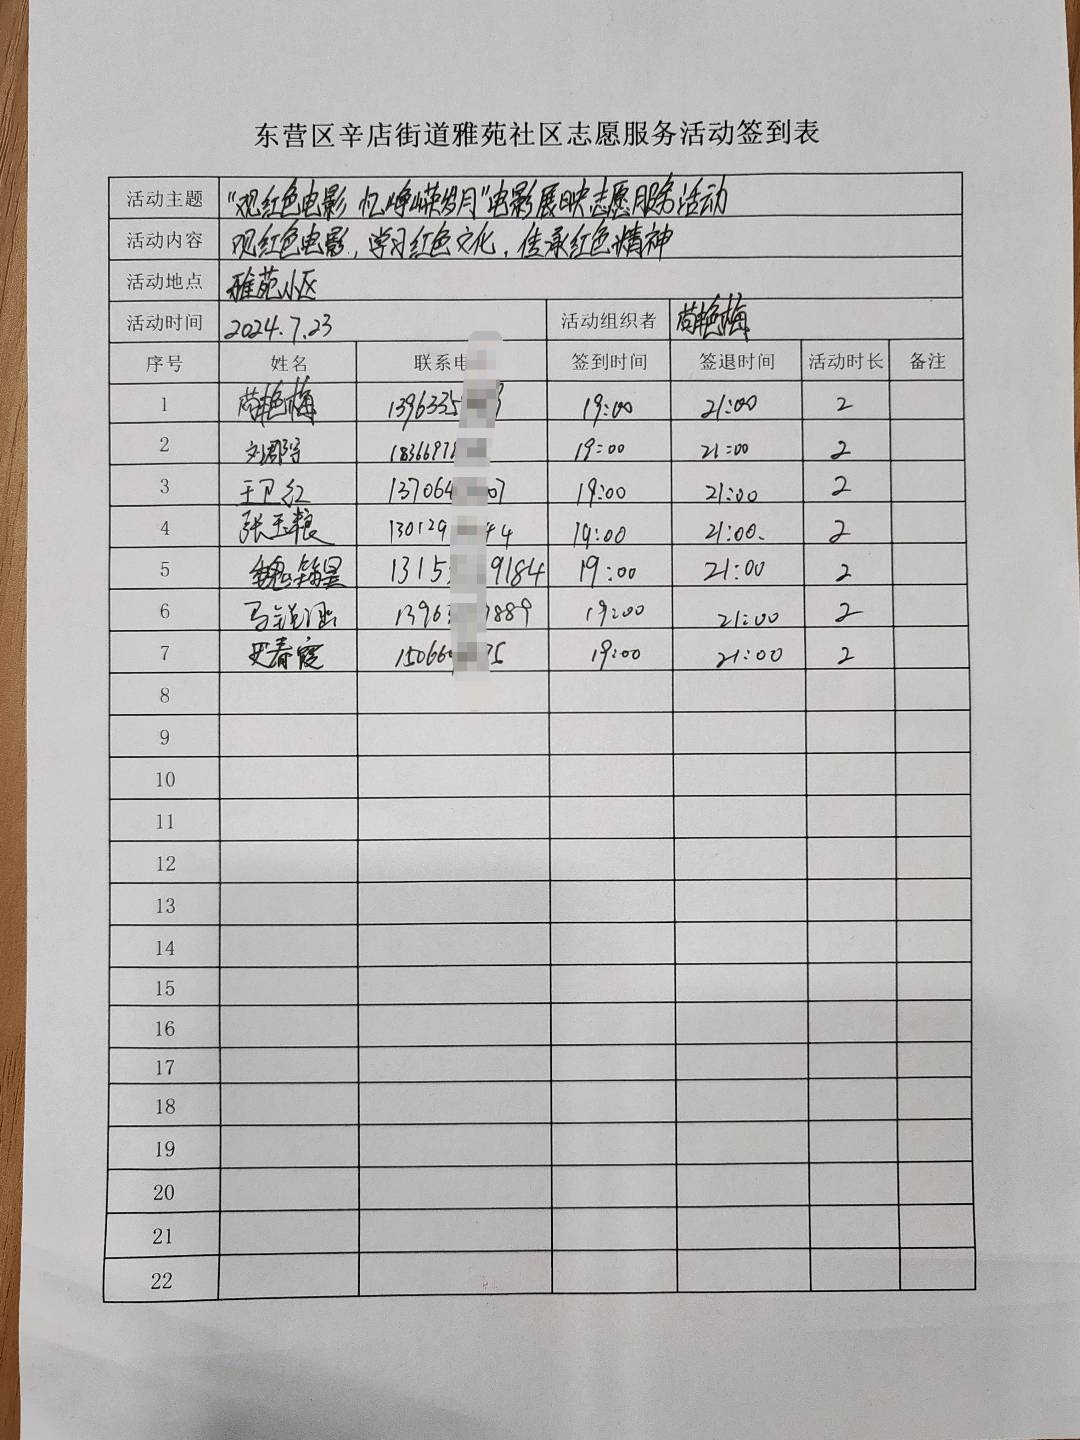 东营区辛店街道雅苑社区志愿服务活动签到表
活动主题 “观红色电影 忆峥嵘岁月”电影展映志愿服务活动
活动内容 观红色电影,学习红色文化,传承红色精神
活动地点 雅苑小区
活动时间 2024.7.23 活动组织者 苟艳梅
序号 姓名 联系电 签到时间 签退时间 活动时长 备注
1 苟艳梅 139633 19:00 21:00 2
2 183669 19:00 21:00 2
3 王卫红 13706 07 19:00 21:00 2
4 张玉粮 130129 44 19:00 21:00. 2
5 1315 9184 19:00 21:00 2
6 1396 889 19:00 21:00 2
7 史春霞 15066 75 19:00 21:00 2
8
9
10
11
12
13
14
15
16
17
18
19
20
21
22